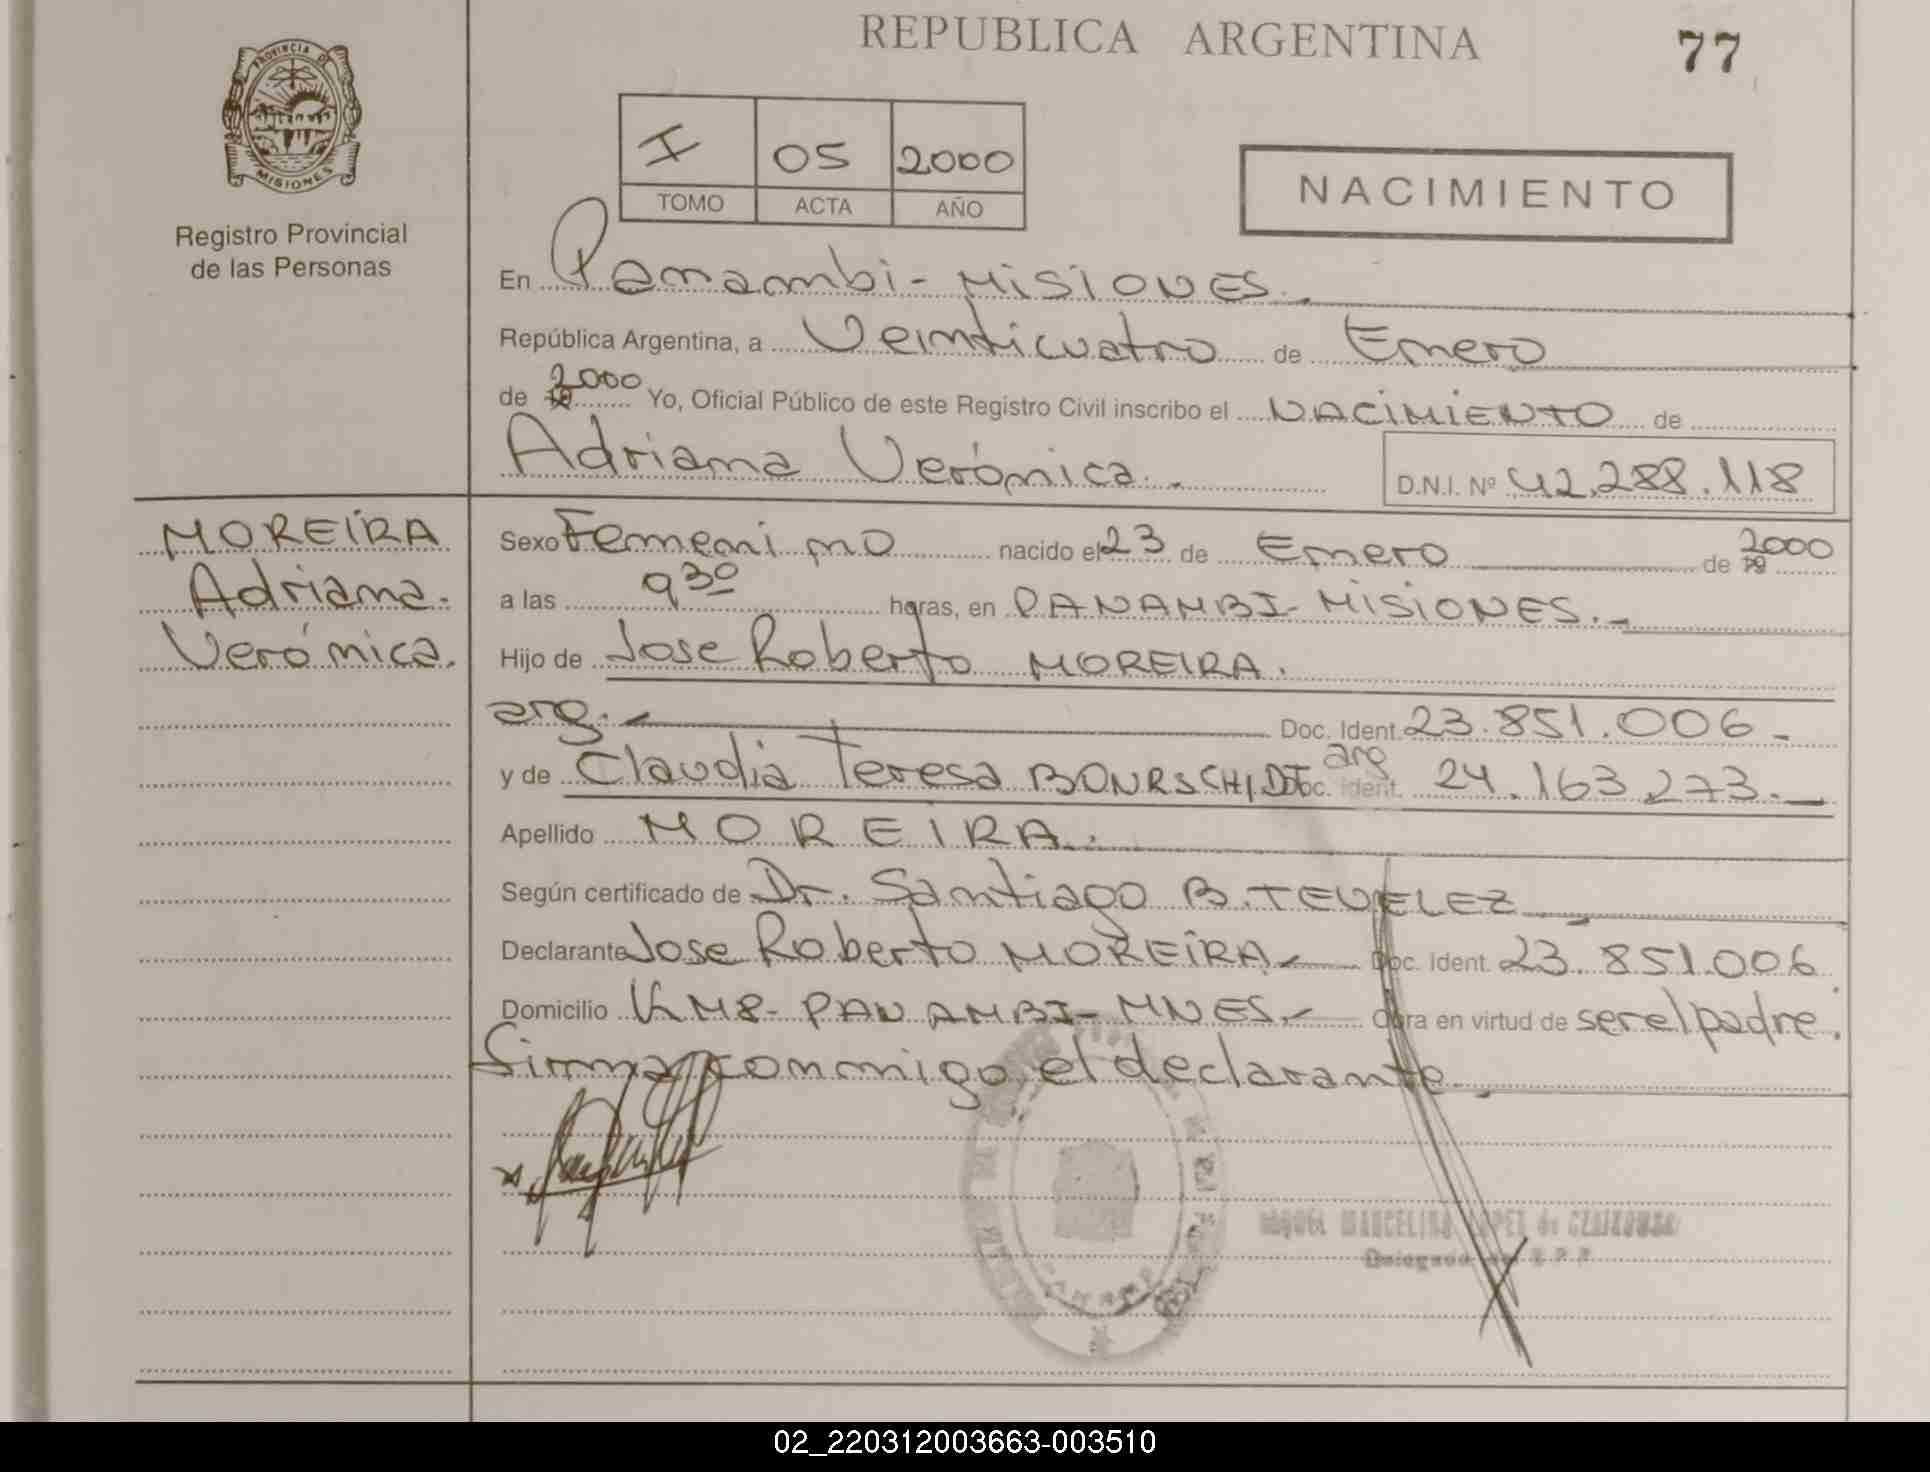 REPUBLICA ARGENTINA
77
PROVINCIA DE
MISIONES
Registro Provincial
de las Personas
I 05 2000
TOMO ACTA AÑO
NACIMIENTO
En Panambi - MISIONES.
República Argentina, a Veinticuatro de Enero
de 19 2000 Yo, Oficial Público de este Registro Civil inscribo el NACIMIENTO de
Adriana Verónica.
D.N.I. Nº 42.288.118
MOREIRA
Adriana.
Verónica.
Sexo Femenino nacido el 23 de Enero de 19 2000
a las 9 30 horas, en PANAMBI - MISIONES.
Hijo de Jose Roberto MOREIRA.
arg. Doc. Ident. 23.851.006
y de Claudia Teresa BOURSCHIDT arg Doc. Ident. 24.163.273.
Apellido MOREIRA.
Según certificado de Dr. Santiago B. TEVELEZ
Declarante Jose Roberto MOREIRA Doc. Ident. 23.851.006
Domicilio KM8 - PANAMBI - MNES. Obra en virtud de ser el padre.
Firma conmigo el declarante.
02_220312003663-003510